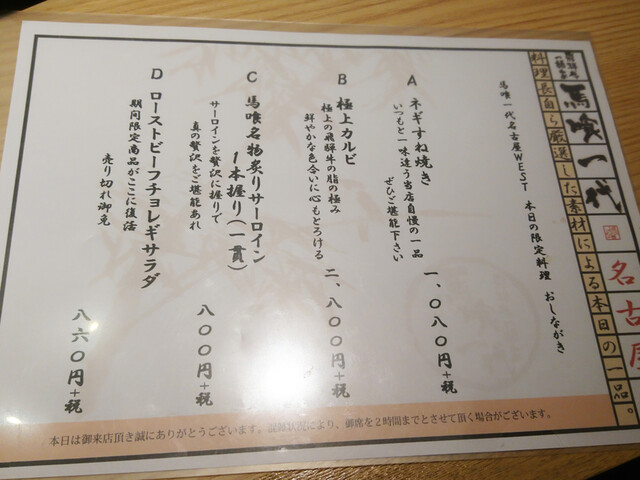 馬喰一代
名古屋
料理長自ら厳選した素材による本日の一品。
馬喰一代名古屋WEST 本日の限定料理 おしながき
A
ネギすね焼き
いつもと一味違う当店自慢の一品
ぜひご堪能下さい
一、〇八〇円+税
B
極上カルビ
極上の飛騨牛の脂の極み
鮮やかな色合いに心もとろける
二、八〇〇円+税
C
馬喰名物炙りサーロイン
1本握り(一貫)
サーロインを贅沢に握りで
真の贅沢をご堪能あれ
八〇〇円+税
D
ローストビーフチョレギサラダ
期間限定商品がここに復活
売り切れ御免
八六〇円+税
本日は御来店頂き誠にありがとうございます。混雑状況により、御席を2時間までとさせて頂く場合がございます。